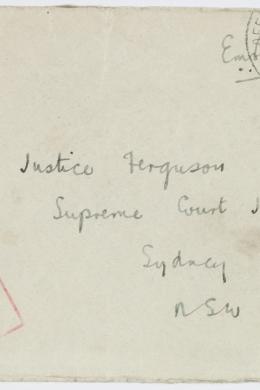 Justice Ferguson
Supreme Court
Sydney
NSW